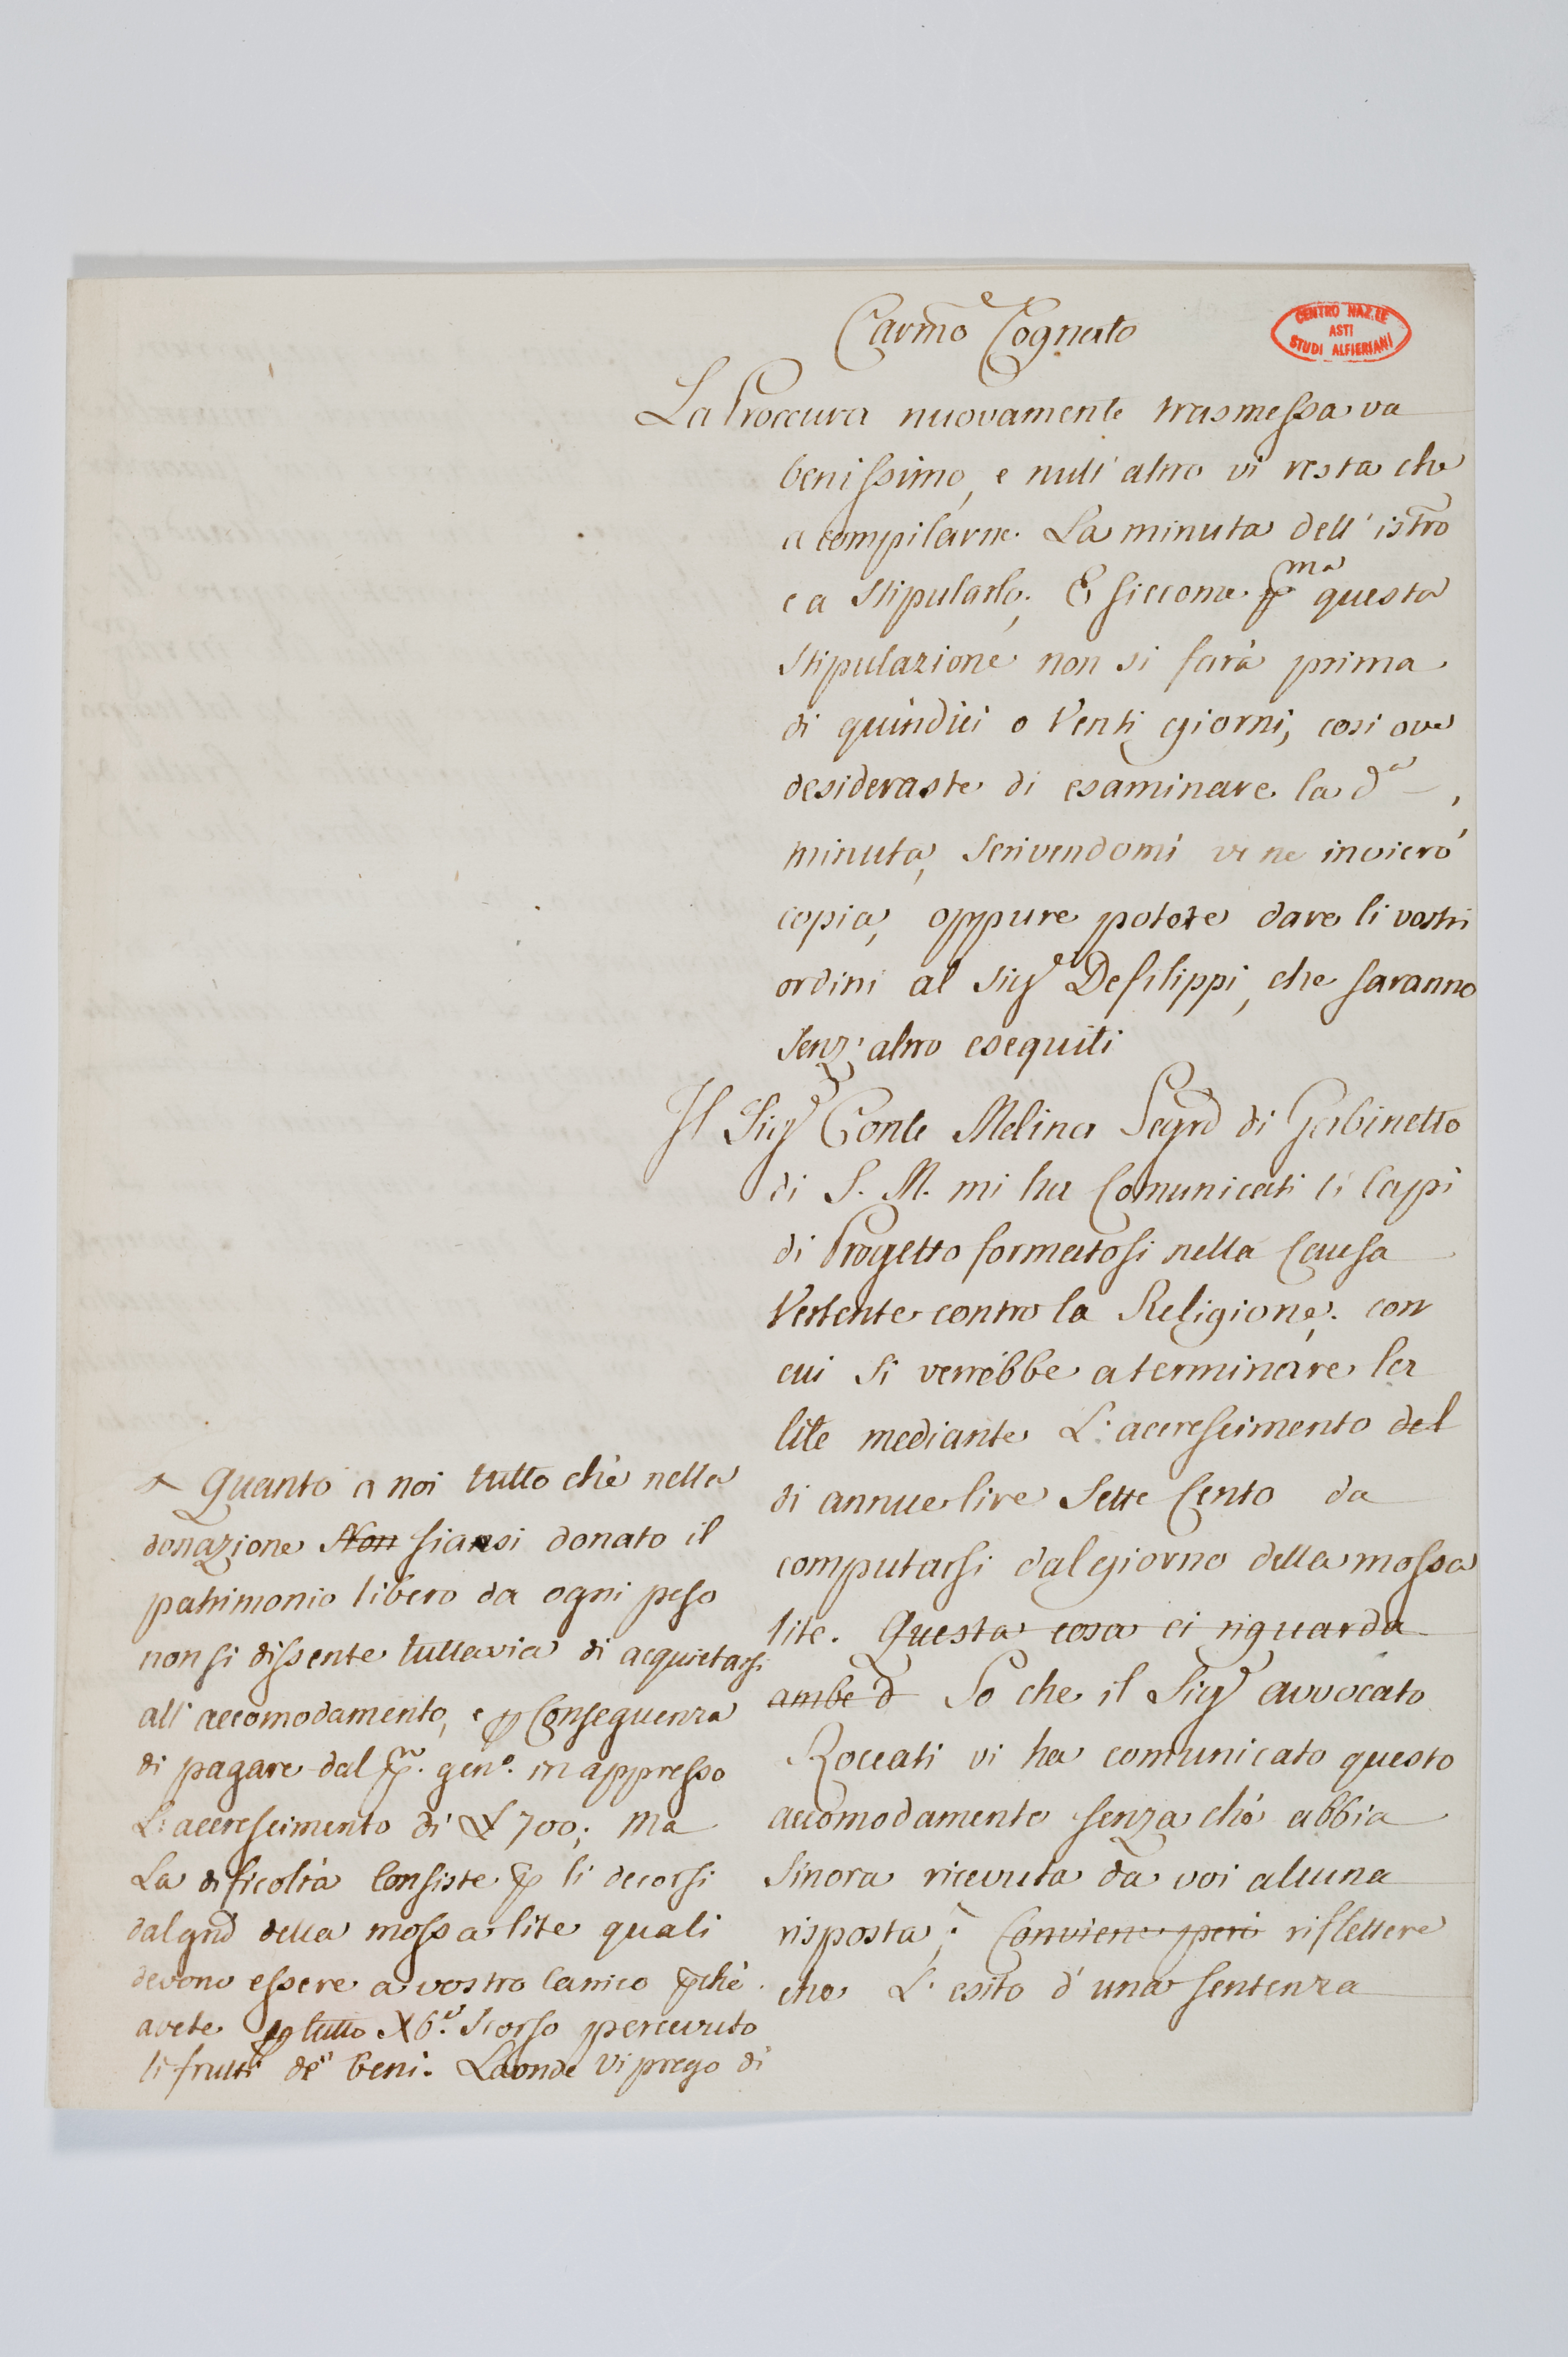 Carmo Cognato
CENTRO NAZ.LE
ASTI
STUDI ALFIERIANI
La Proccura nuovamente trasmessa va
benissimo, e null'altro vi resta che
a compilarne. La minuta dell'istro
e a stipularlo; E siccome pma questa
stipulazione non si farà prima
di quindici o venti giorni, cosi ove
desideraste di esaminare la da,
minuta, scrivendomi ve ne invierò
copia, oppure potete dare li vostri
ordini al Sigr Defilippi, che saranno
senz'altro eseguiti
Il Sigr Conte Melina Segro di Gabinetto
di S. M. mi ha Comunicati li Capi
di Progetto formatosi nella Causa
Vertente contro la Religione; con
cui si verrebbe a terminare la
lite mediante L'accrescimento del
di annue lire Sette Cento da
computarsi dal giorno della mossa
lite. Questa cosa ci riguarda
ambe d So che il Sigr avvocato
Roccati vi ha comunicato questo
accomodamento senza chè abbia
sinora ricevuta da voi alcuna
risposta; Conviene però riflettere
che L'esito d'una sentenza
Quanto a noi tutto chè nella
donazione Non siansi donato il
patrimonio libero da ogni peso
non si dissente tuttavia di acquietarsi
all'accomodamento, e p Conseguenza
di pagare dal p. geno. in appresso
L'accrescimento di £ 700; Ma
La dificoltà Consiste p li decorsi
dal gno della mossa lite quali
devono essere a vostro Carrico pchè
avete p tutto X6.e Scorso percevuto
li frutti de' beni. Laonde vi prego di